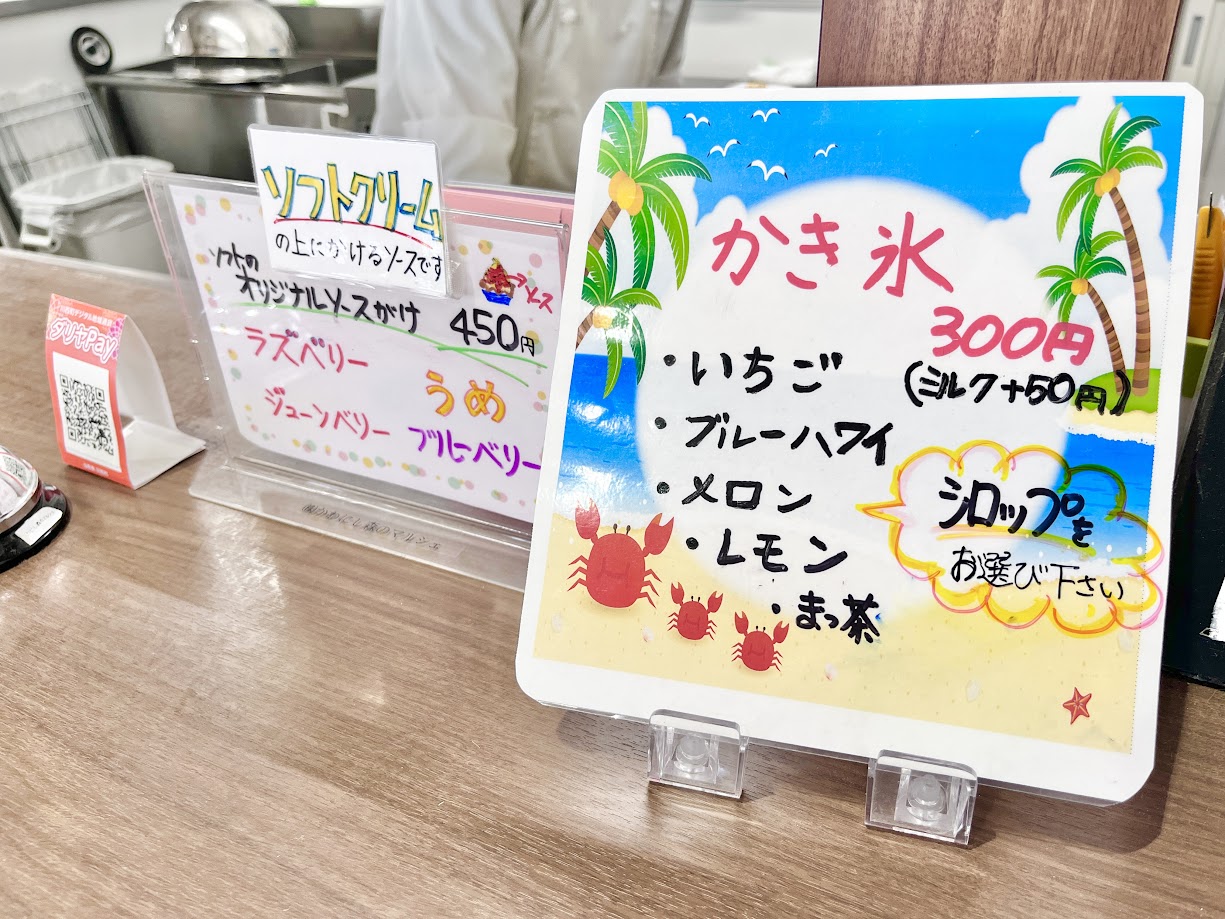 ソフトクリーム
の上にかけるソースです
ソフトの
オリジナルソースがけ 450円
ソース
ラズベリー
うめ
ジューンベリー
ブルーベリー
ダリヤPay
かき氷
300円
・いちご (ミルク+50円)
・ブルーハワイ
・メロン
・レモン
・まっ茶
シロップを
お選び下さい